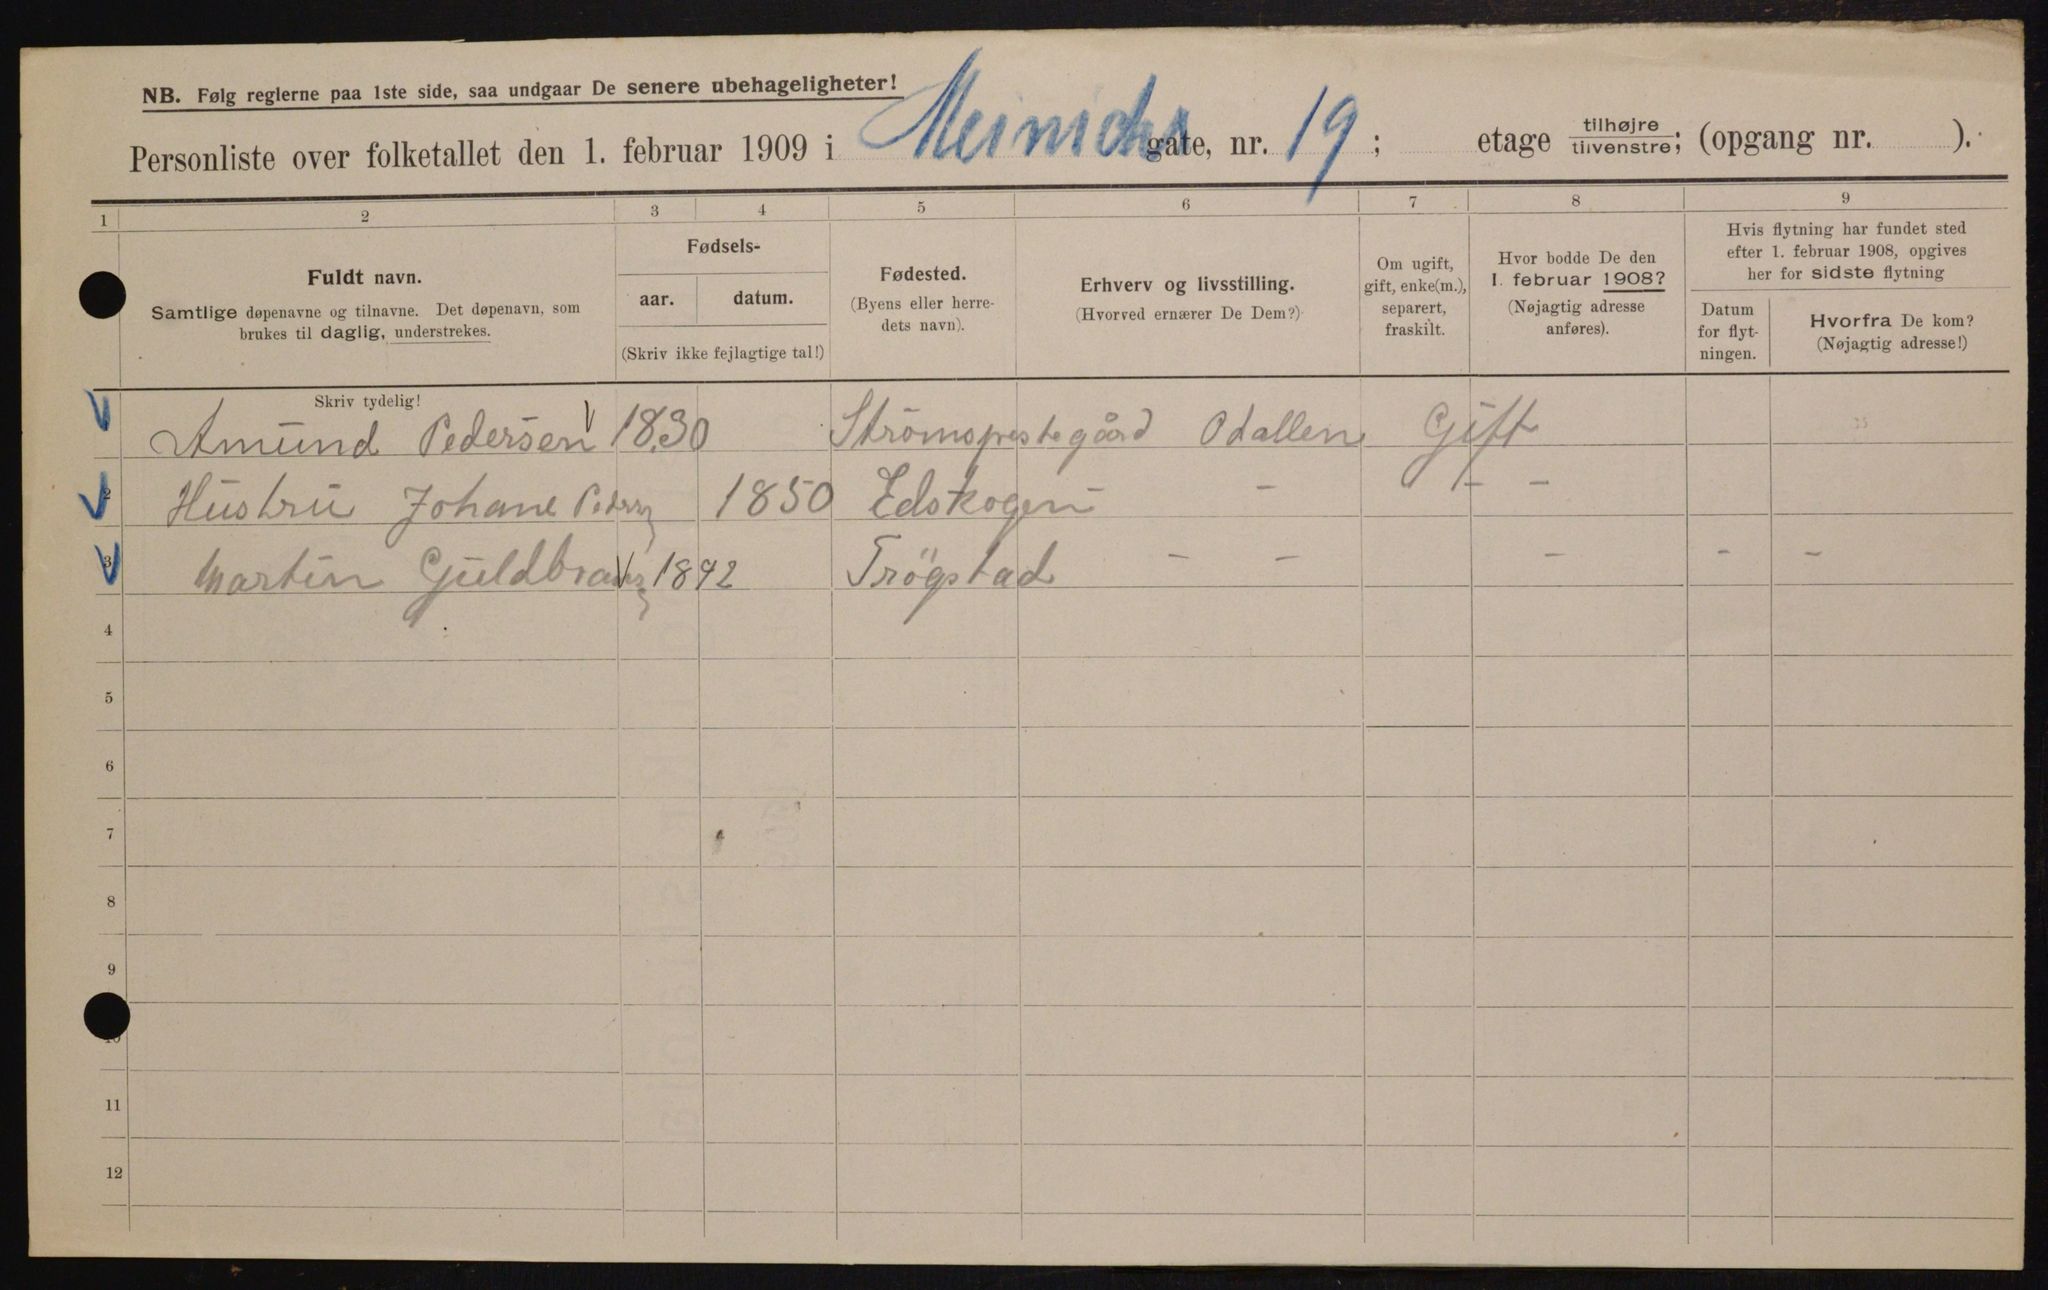 NB. Følg reglerne paa 1ste side, saa undgaar De senere ubehageligheter!
Personliste over folketallet den 1. februar 1909 i Meinichs gate, nr. 19; etage tilhøjre tilvenstre; (opgang nr. ).
1 2 3 4 5 6 7 8 9
Fuldt navn.
Samtlige døpenavne og tilnavne. Det døpenavn, som
brukes til daglig, understrekes.
Fødsels-
aar. datum.
(Skriv ikke fejlagtige tal!)
Fødested.
(Byens eller herre-
dets navn).
Erhverv og livsstilling.
(Hvorved ernærer De Dem?)
Om ugift,
gift, enke(m.),
separert,
fraskilt.
Hvor bodde De den
1. februar 1908?
(Nøjagtig adresse
anføres).
Hvis flytning har fundet sted
efter 1. februar 1908, opgives
her for sidste flytning
Datum
for flyt-
ningen.
Hvorfra De kom?
(Nøjagtig adresse!)
Skriv tydelig!
Amund Pedersen 1830 Strömsprestegård Odallen Gift
2 Hustru Johane 1850 Edskogen - - -
3 Martin 1892 Trögstad - - - - -
4
5
6
7
8
9
10
11
12